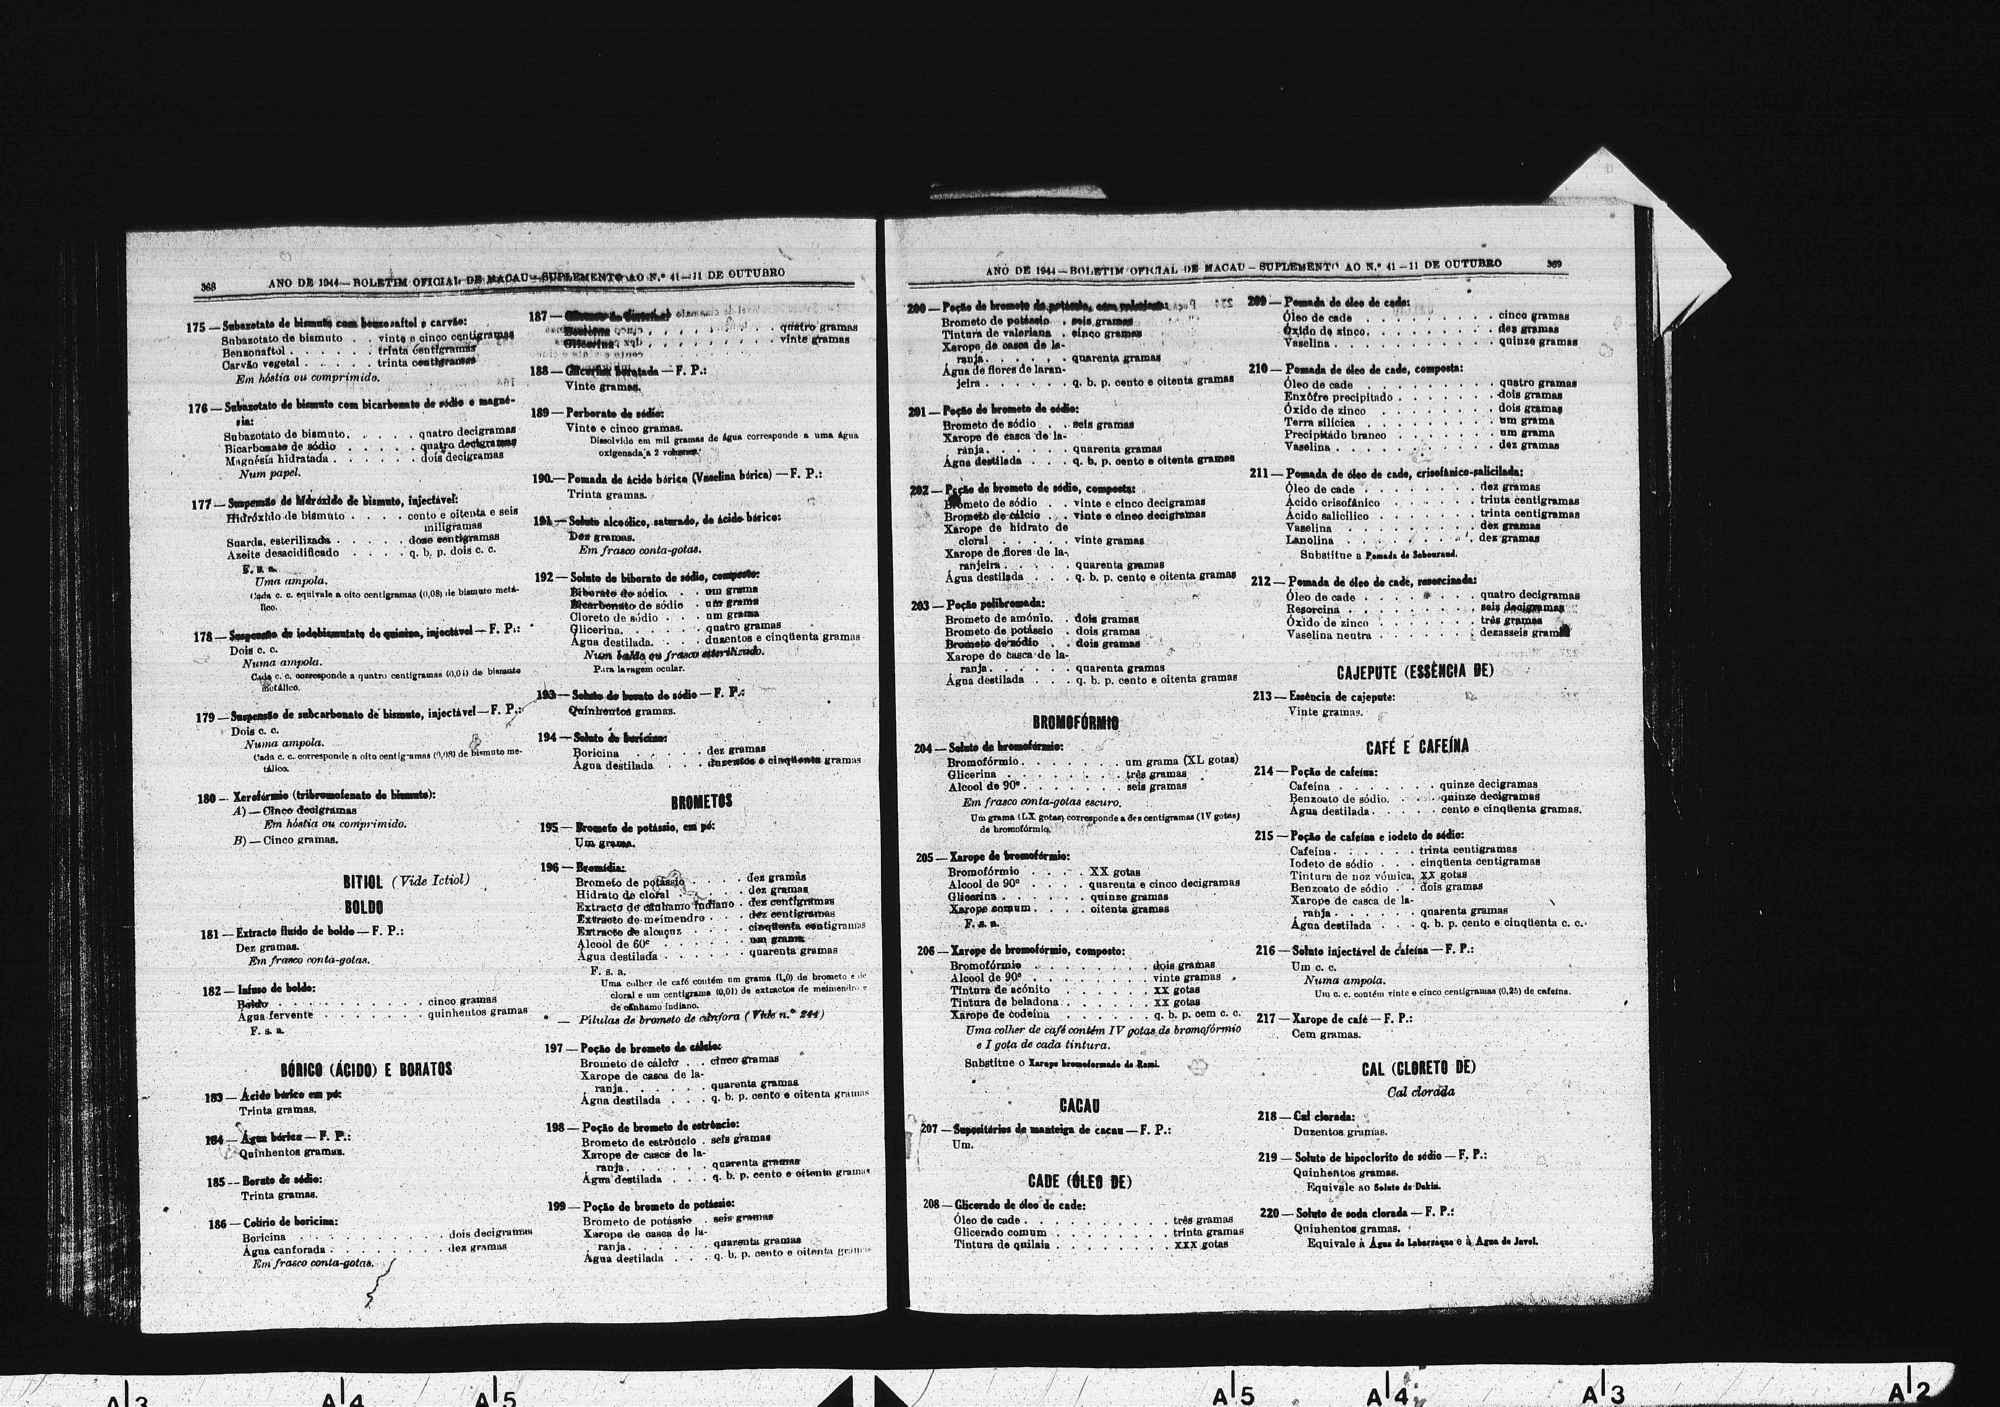 368
ANO DE 1944—BOLETIM OFICIAL DE MACAU—SUPLEMENTO AO N.º 41—11 DE OUTUBRO
175—Subazotato de bismuto com benzonaftol e carvão:
Subazotato de bismuto . . vinte e cinco centigramas
Benzonaftol . . . . . . trinta centigramas
Carvão vegetal . . . . . trinta centigramas
Em hóstia ou comprimido.
176—Subazotato de bismuto com bicarbonato de sódio e magné-
sia:
Subazotato de bismuto. . . . . quatro decigramas
Bicarbonato de sódio . . . . . quatro decigramas
Magnésia hidratada . . . . . . dois decigramas
Num papel.
177—Suspensão de hidróxido de bismuto, injectável:
Hidróxido de bismuto . . . . cento e oitenta e seis
miligramas
Suarda, esterilizada . . . . . doze centigramas
Azeite desacidificado . . . . q. b. p. dois c. c.
F. s. a.
Uma ampola.
Cada c. c. equivale a oito centigramas (0,08) de bismuto metá-
lico.
178—Suspensão de iodobismutato de quinino, injectável—F. P.:
Dois c. c.
Numa ampola.
Cada c. c. corresponde a quatro centigramas (0,04) de bismuto
metálico.
179—Suspensão de subcarbonato de bismuto, injectável—F. P.:
Dois c. c.
Numa ampola.
Cada c. c. corresponde a oito centigramas (0,08) de bismuto me-
tálico.
180—Xerofórmio (tribromofenato de bismuto):
A)—Cinco decigramas
Em hóstia ou comprimido.
B)—Cinco gramas.
BITIOL (Vide Ictiol)
BOLDO
181—Extracto fluido de boldo—F. P.:
Dez gramas.
Em frasco conta-gotas.
182—Infuso de boldo:
Boldo . . . . . . . . . . cinco gramas
Água fervente . . . . . . . quinhentos gramas
F. s. a.
BÓRICO (ÁCIDO) E BORATOS
183—Ácido bórico em pó:
Trinta gramas.
184—Água bórica—F. P.:
Quinhentos gramas.
185—Borato de sódio:
Trinta gramas.
186—Colírio de boricina:
Boricina . . . . . . . . . . . dois decigramas
Água canforada . . . . . . . . . dez gramas
Em frasco conta-gotas.
187—
. . . . . . . . . . quatro gramas
Glicerina . . . . . . . . . . vinte gramas
188—Glicerina boratada—F. P.:
Vinte gramas.
189—Perborato de sódio:
Vinte e cinco gramas.
Dissolvido em mil gramas de água corresponde a uma água
oxigenada a 2 volumes.
190.—Pomada de ácido bórico (Vaselina bórica)—F. P.:
Trinta gramas.
191—Soluto alcoólico, saturado, de ácido bórico:
Dez gramas.
Em frasco conta-gotas.
192—Soluto de biborato de sódio, composto:
Biborato de sódio . . um grama
Bicarbonato de sódio . um grama
Cloreto de sódio . . . um grama
Glicerina. . . . . . . quatro gramas
Água destilada. . . . duzentos e cinqüenta gramas
Num balão ou frasco esterilizado.
Para lavagem ocular.
193—Soluto de borato de sódio—F. P.:
Quinhentos gramas.
194—Soluto de boricina:
Boricina . . . . . dez gramas
Água destilada . . . duzentos e cinqüenta gramas
BROMETOS
195—Brometo de potássio, em pó:
Um grama.
196—Bromídia:
Brometo de potássio . . . . dez gramas
Hidrato de cloral . . . . . dez gramas
Extracto de cânhamo indiano . dez centigramas
Extracto de meimendro . . . dez centigramas
Extracto de alcaçuz . . . . cinqüenta centigramas
Alcool de 60º . . . . . . um grama
Água destilada . . . . . . quarenta gramas
F. s. a.
Uma colher de café contém um grama (1,0) de brometo e de
cloral e um centigrama (0,01) de extractos de meimendro e
de cânhamo indiano.
— Pílulas de brometo de cânfora (Vide n.º 244)
197—Poção de brometo de cálcio:
Brometo de cálcio . . cinco gramas
Xarope de casca de la-
ranja. . . . . . . quarenta gramas
Água destilada . . . q. b. p. cento e oitenta gramas
198—Poção de brometo de estrôncio:
Brometo de estrôncio . seis gramas
Xarope de casca de la-
ranja. . . . . . . quarenta gramas
Água destilada . . . q. b. p. cento e oitenta gramas
199—Poção de brometo de potássio:
Brometo de potássio . seis gramas
Xarope de casca de la-
ranja. . . . . . . quarenta gramas
Água destilada . . . q. b. p. cento e oitenta gramas
ANO DE 1944—BOLETIM OFICIAL DE MACAU—SUPLEMENTO AO N.º 41—11 DE OUTUBRO
369
200—Poção de brometo de potássio, com valeriana:
Brometo de potássio . seis gramas
Tintura de valeriana . cinco gramas
Xarope de casca de la-
ranja. . . . . . quarenta gramas
Água de flores de laran-
jeira . . . . . . q. b. p. cento e oitenta gramas
201—Poção de brometo de sódio:
Brometo de sódio . . seis gramas
Xarope de casca de la-
ranja. . . . . . quarenta gramas
Água destilada . . . q. b. p. cento e oitenta gramas
202—Poção de brometo de sódio, composta:
Brometo de sódio . . vinte e cinco decigramas
Brometo de cálcio . . vinte e cinco decigramas
Xarope de hidrato de
cloral . . . . . . vinte gramas
Xarope de flores de la-
ranjeira . . . . . quarenta gramas
Água destilada . . . q. b. p. cento e oitenta gramas
203—Poção polibromada:
Brometo de amónio. . dois gramas
Brometo de potássio . dois gramas
Brometo de sódio . . dois gramas
Xarope de casca de la-
ranja. . . . . . quarenta gramas
Água destilada . . . q. b. p. cento e oitenta gramas
BROMOFÓRMIO
204—Soluto de bromofórmio:
Bromofórmio. . . . . . . um grama (XL gotas)
Glicerina . . . . . . . . três gramas
Alcool de 90º . . . . . . . seis gramas
Em frasco conta-gotas escuro.
Um grama (LX gotas) corresponde a dez centigramas (IV gotas)
de bromofórmio.
205—Xarope de bromofórmio:
Bromofórmio . . . . XX gotas
Alcool de 90º . . . . quarenta e cinco decigramas
Glicerina . . . . . . quinze gramas
Xarope comum . . . . oitenta gramas
F. s. a.
206—Xarope de bromofórmio, composto:
Bromofórmio . . . . . . . . dois gramas
Alcool de 90º . . . . . . . . vinte gramas
Tintura de acónito . . . . . . . XX gotas
Tintura de beladona . . . . . . XX gotas
Xarope de codeína . . . . . . q. b. p. cem c. c.
Uma colher de café contém IV gotas de bromofórmio
e I gota de cada tintura.
Substitue o Xarope bromoformado de Rami.
CACAU
207—Supositórios de manteiga de cacau—F. P.:
Um.
CADE (ÓLEO DE)
208—Glicerado de óleo de cade:
Óleo de cade . . . . . . . . . três gramas
Glicerado comum . . . . . . . . trinta gramas
Tintura de quilaia . . . . . . . . XXX gotas
209—Pomada de óleo de cade:
Óleo de cade . . . . . . . . . cinco gramas
Óxido de zinco. . . . . . . . . dez gramas
Vaselina. . . . . . . . . . . quinze gramas
210—Pomada de óleo de cade, composta:
Óleo de cade . . . . . . . . . quatro gramas
Enxôfre precipitado . . . . . . . dois gramas
Óxido de zinco . . . . . . . . dois gramas
Terra silícica . . . . . . . . . um grama
Precipitado branco . . . . . . . um grama
Vaselina . . . . . . . . . . . dez gramas
211—Pomada de óleo de cade, crisofânico-salicilada:
Óleo de cade . . . . . . . . dez gramas
Ácido crisofânico . . . . . . . trinta centigramas
Ácido salicílico . . . . . . . trinta centigramas
Vaselina . . . . . . . . . . dez gramas
Lanolina . . . . . . . . . . dez gramas
Substitue a Pomada de Sabouraud.
212—Pomada de óleo de cade, resorcinada:
Óleo de cade . . . . . . . . quatro decigramas
Resorcina . . . . . . . . . . seis decigramas
Óxido de zinco . . . . . . . . três gramas
Vaselina neutra . . . . . . . . dezasseis gramas
CAJEPUTE (ESSÊNCIA DE)
213—Essência de cajepute:
Vinte gramas.
CAFÉ E CAFEÍNA
214—Poção de cafeína:
Cafeína . . . . . . . quinze decigramas
Benzoato de sódio. . . . quinze decigramas
Água destilada. . . . . cento e cinqüenta gramas.
215—Poção de cafeína e iodeto de sódio:
Cafeína . . . . . . trinta centigramas
Iodeto de sódio . . . cinqüenta centigramas
Tintura de noz vómica. XX gotas
Benzoato de sódio . . dois gramas
Xarope de casca de la-
ranja . . . . . . quarenta gramas
Água destilada . . . q. b. p. cento e cinqüenta c. c.
216—Soluto injectável de cafeína—F. P.:
Um c. c.
Numa ampola.
Um c. c. contém vinte e cinco centigramas (0,25) de cafeína.
217—Xarope de café—F. P.:
Cem gramas.
CAL (CLORETO DE)
Cal clorada
218—Cal clorada:
Duzentos gramas.
219—Soluto de hipoclorito de sódio—F. P.:
Quinhentos gramas.
Equivale ao Soluto de Dakin.
220—Soluto de soda clorada—F. P.:
Quinhentos gramas.
Equivale à Água de Labarraque e à Água de Javel.
A|3
A|4
A|5
A|5
A|4
A|3
A|2